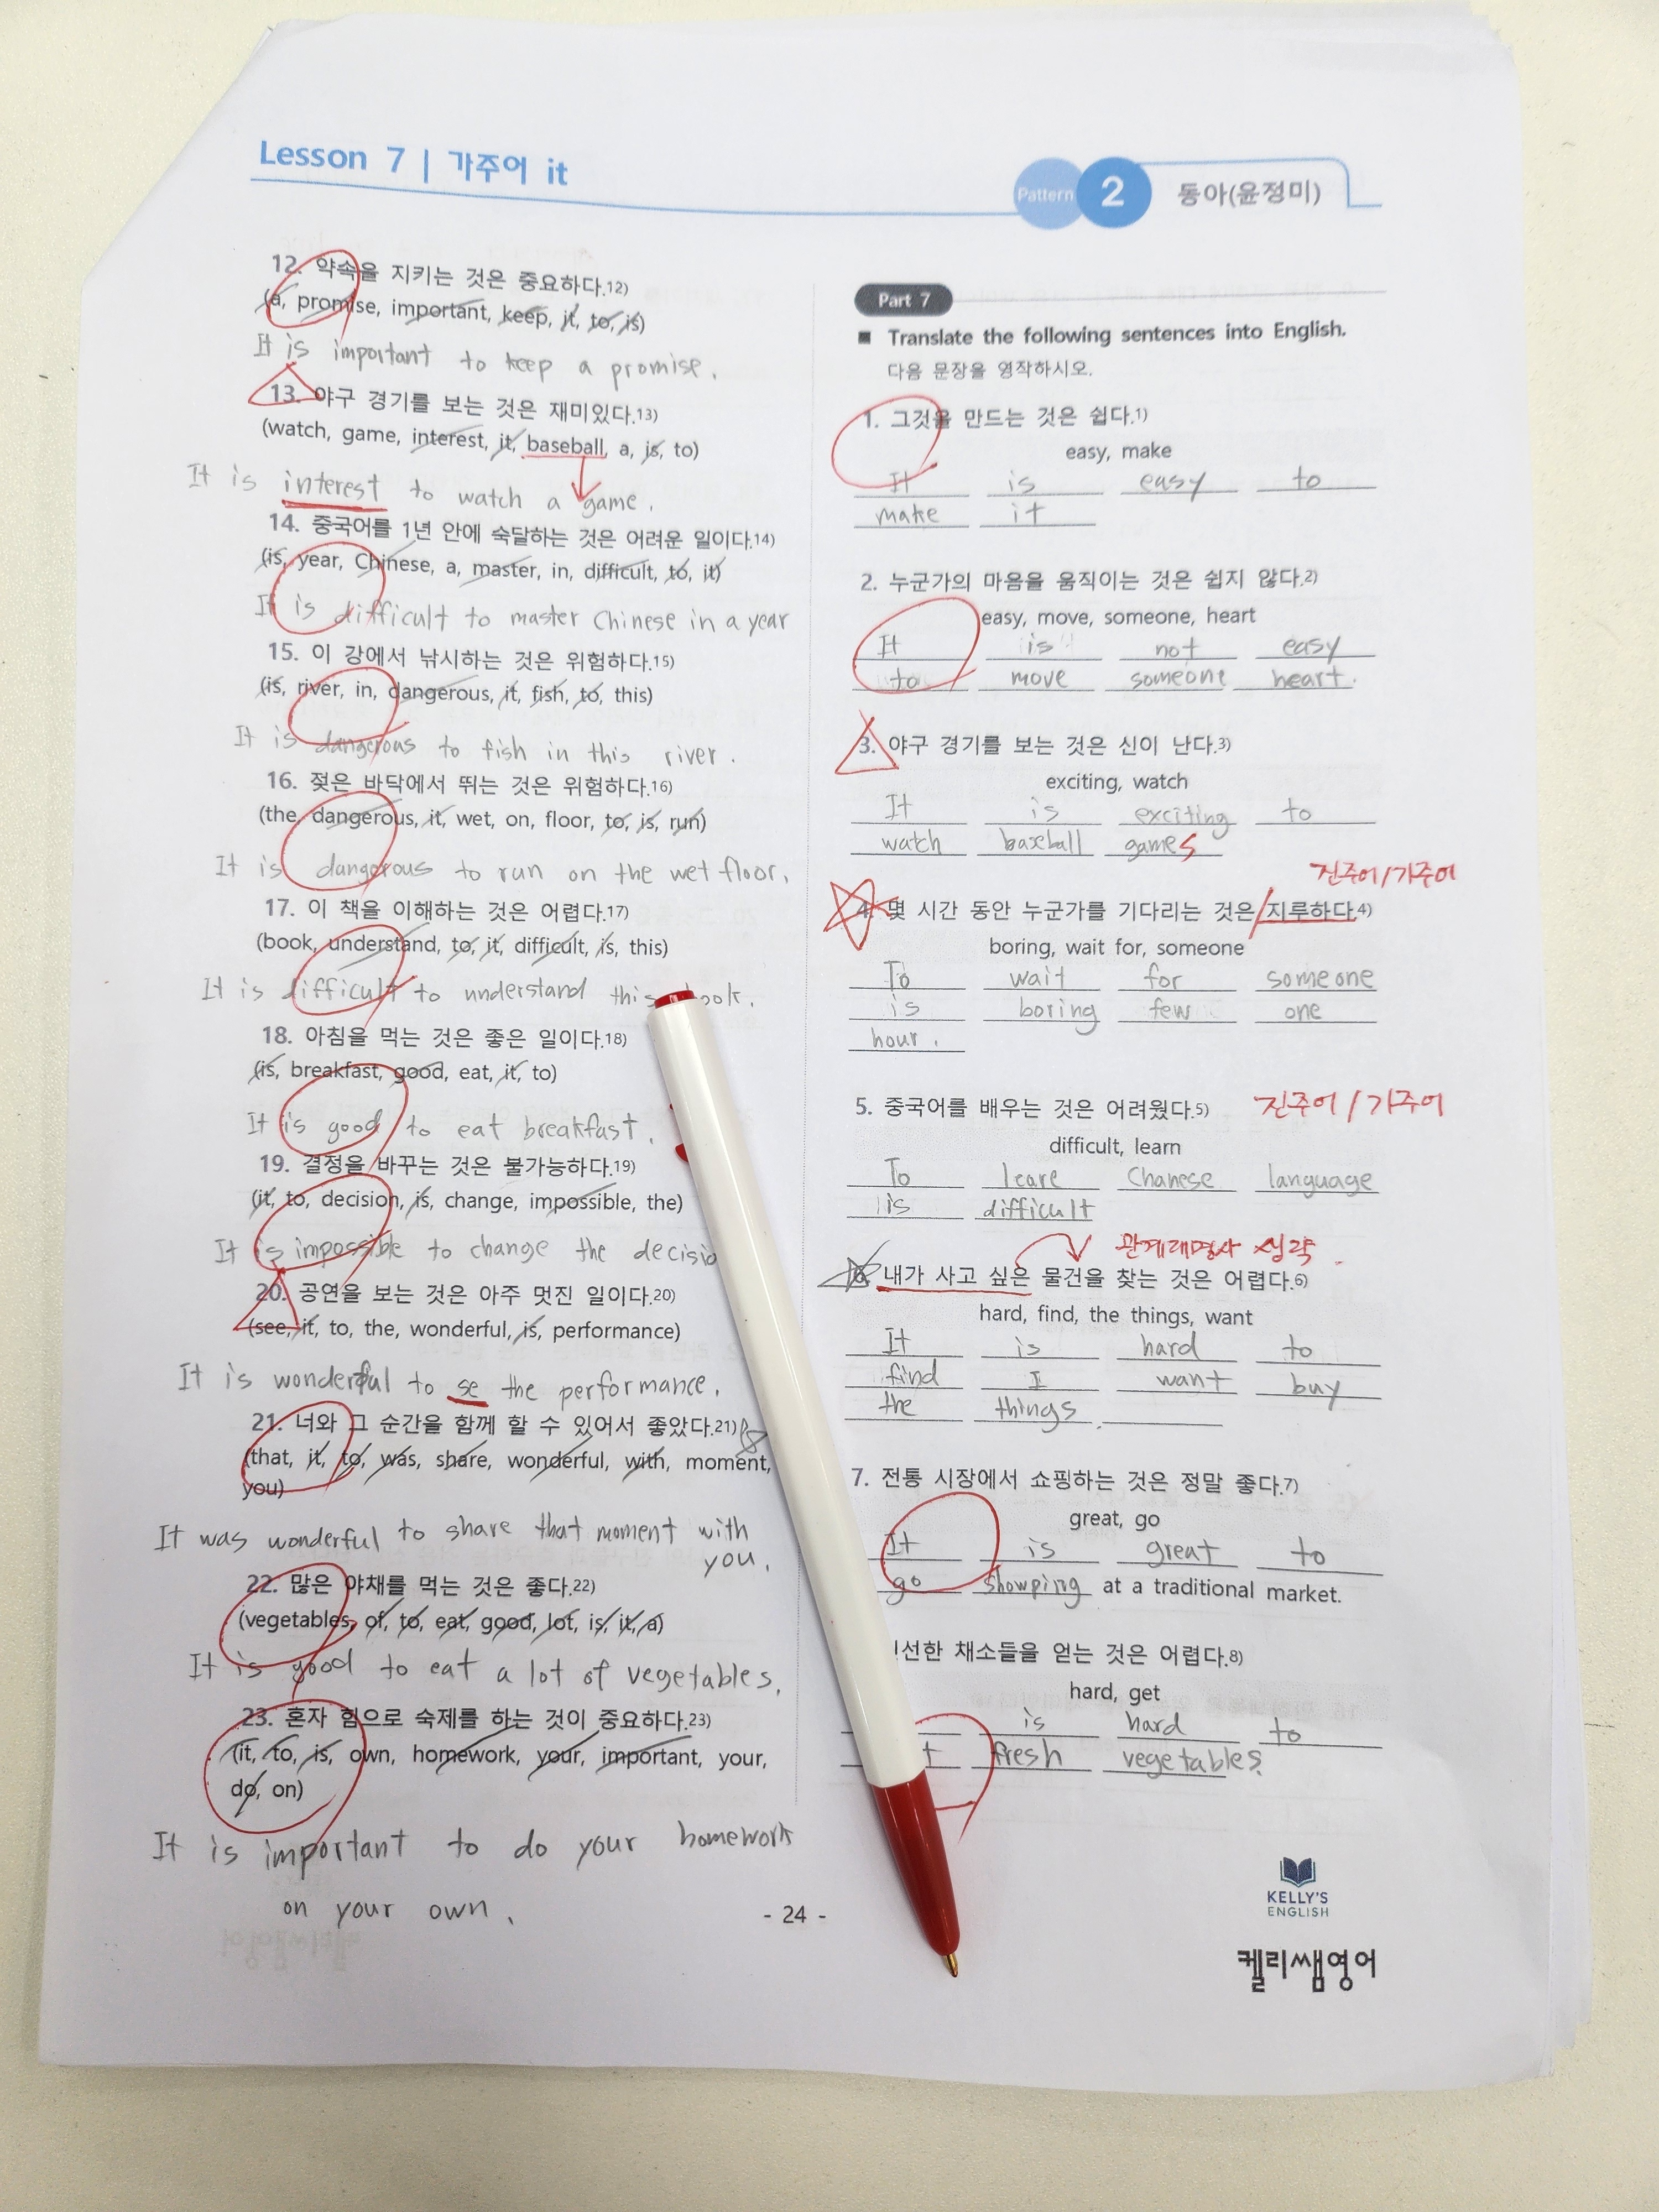 Lesson 7 | 가주어 it
Pattern 2 동아(윤정미)
12. 약속을 지키는 것은 중요하다.12)
(a, promise, important, keep, it, to, is)
It is important to keep a promise.
13. 야구 경기를 보는 것은 재미있다.13)
(watch, game, interest, it, baseball, a, is, to)
It is interest to watch a game.
14. 중국어를 1년 안에 숙달하는 것은 어려운 일이다.14)
(is, year, Chinese, a, master, in, difficult, to, it)
It is difficult to master Chinese in a year
15. 이 강에서 낚시하는 것은 위험하다.15)
(is, river, in, dangerous, it, fish, to, this)
It is dangerous to fish in this river.
16. 젖은 바닥에서 뛰는 것은 위험하다.16)
(the, dangerous, it, wet, on, floor, to, is, run)
It is dangerous to run on the wet floor.
17. 이 책을 이해하는 것은 어렵다.17)
(book, understand, to, it, difficult, is, this)
It is difficult to understand this book.
18. 아침을 먹는 것은 좋은 일이다.18)
(is, breakfast, good, eat, it, to)
It is good to eat breakfast.
19. 결정을 바꾸는 것은 불가능하다.19)
(it, to, decision, is, change, impossible, the)
It is impossible to change the decisio
20. 공연을 보는 것은 아주 멋진 일이다.20)
(see, it, to, the, wonderful, is, performance)
It is wonderful to se the performance.
21. 너와 그 순간을 함께 할 수 있어서 좋았다.21)
(that, it, to, was, share, wonderful, with, moment,
you)
It was wonderful to share that moment with
you.
22. 많은 야채를 먹는 것은 좋다.22)
(vegetables, of, to, eat, good, lot, is, it, a)
It is good to eat a lot of vegetables.
23. 혼자 힘으로 숙제를 하는 것이 중요하다.23)
(it, to, is, own, homework, your, important, your,
do, on)
It is important to do your homework
on your own.
Part 7
■ Translate the following sentences into English.
다음 문장을 영작하시오.
1. 그것을 만드는 것은 쉽다.1)
easy, make
It is easy to
make it
2. 누군가의 마음을 움직이는 것은 쉽지 않다.2)
easy, move, someone, heart
It is not easy
to move someone heart.
3. 야구 경기를 보는 것은 신이 난다.3)
exciting, watch
It is exciting to
watch baseball games
진주어/가주어
4. 몇 시간 동안 누군가를 기다리는 것은/지루하다.4)
boring, wait for, someone
To wait for someone
is boring few one
hour.
5. 중국어를 배우는 것은 어려웠다.5) 진주어/가주어
difficult, learn
To leare Chanese language
is difficult
관계대명사 생략
6. 내가 사고 싶은 물건을 찾는 것은 어렵다.6)
hard, find, the things, want
It is hard to
find I want buy
the things.
7. 전통 시장에서 쇼핑하는 것은 정말 좋다.7)
great, go
It is great to
go showping at a traditional market.
선한 채소들을 얻는 것은 어렵다.8)
hard, get
is hard to
t fresh vegetables.
- 24 -
KELLY'S
ENGLISH
켈리쌤영어